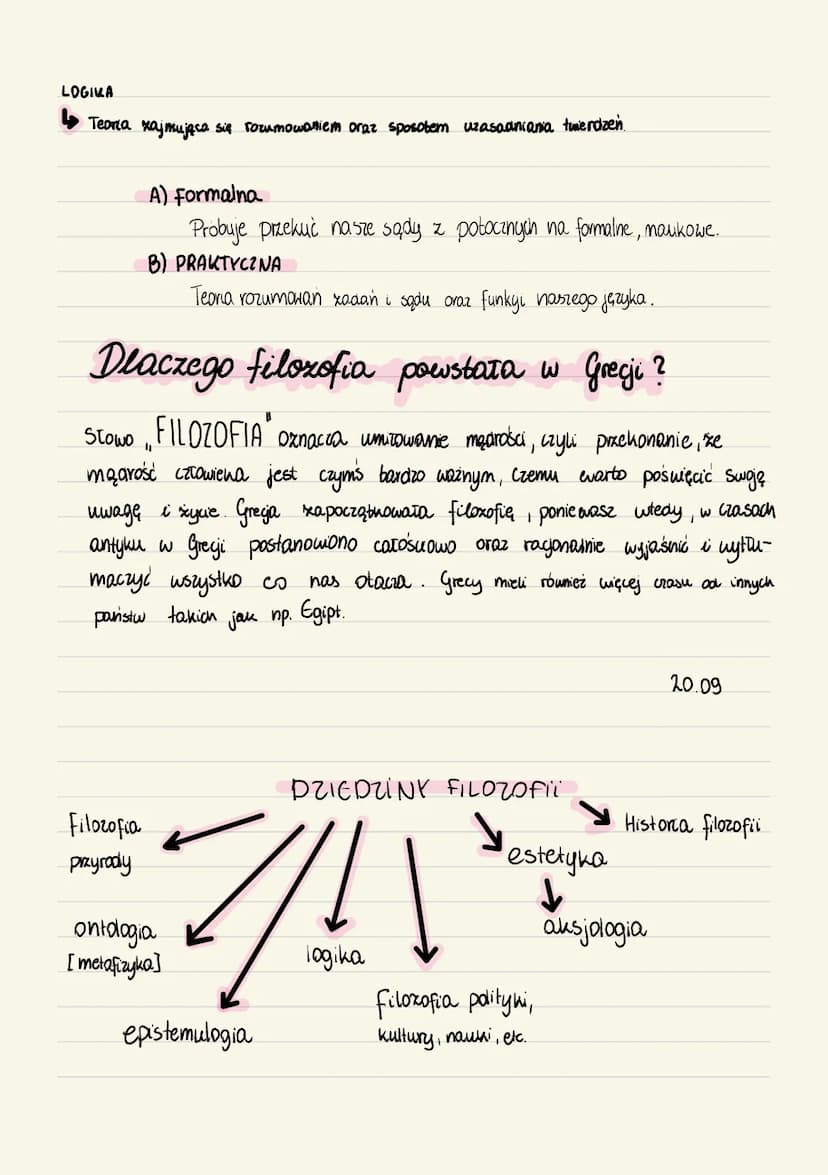 LOGIKA
↳ Teoria zajmująca się rozumowaniem oraz sposobem uzasadniania twierdzeń.
A) formalna
Próbuje przekuć nasze sądy z potocznych na formalne, naukowe.
B) PRAKTYCZNA
Teoria rozumowań zadań i sądu oraz funkcji naszego języka.
Dlaczego filozofia powstała w Grecji?
Słowo „FILOZOFIA" oznacza umiłowanie mądrości, czyli przekonanie, że
mądrość człowieka jest czymś bardzo ważnym, czemu warto poświęcić swoję
uwagę i życie. Grecja zapoczątkowała filozofię, ponieważ wtedy, w czasach
antyku w Grecji postanowiono całościowo oraz racjonalnie wyjaśnić i wytłu-
maczyć wszystko co nas otacza. Grecy mieli również więcej czasu od innych
państw takich jak np. Egipt.
20.09
DZIEDZINY FILOZOFII
Filozofia
przyrody
Historia filozofii
estetyka
ontologia
[metafizyka]
aksjologia
logika
filozofia polityki,
kultury, nauki, etc.
epistemulogia